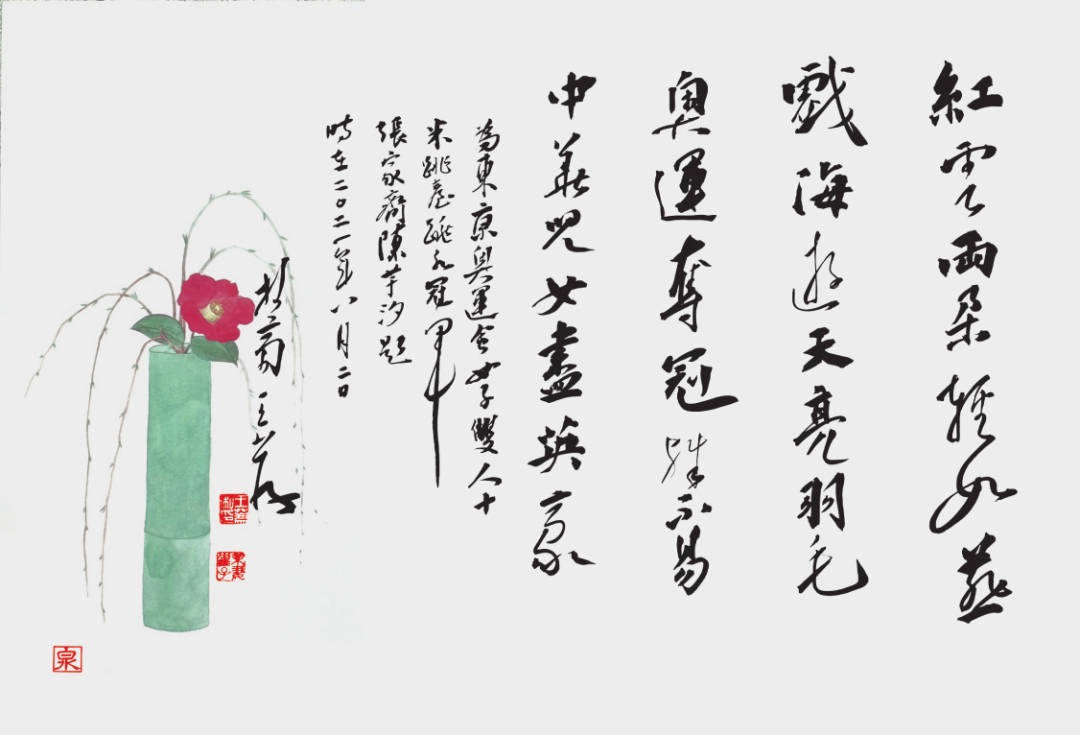 紅雲兩朵輕如燕
戲海遊天亮羽毛
奧運奪冠殊不易
中華兒女盡英豪
為東京奧運會女子雙人十
米跳臺跳水冠軍
張家齊陳芋汐題
時在二〇二一年八月二日
泉